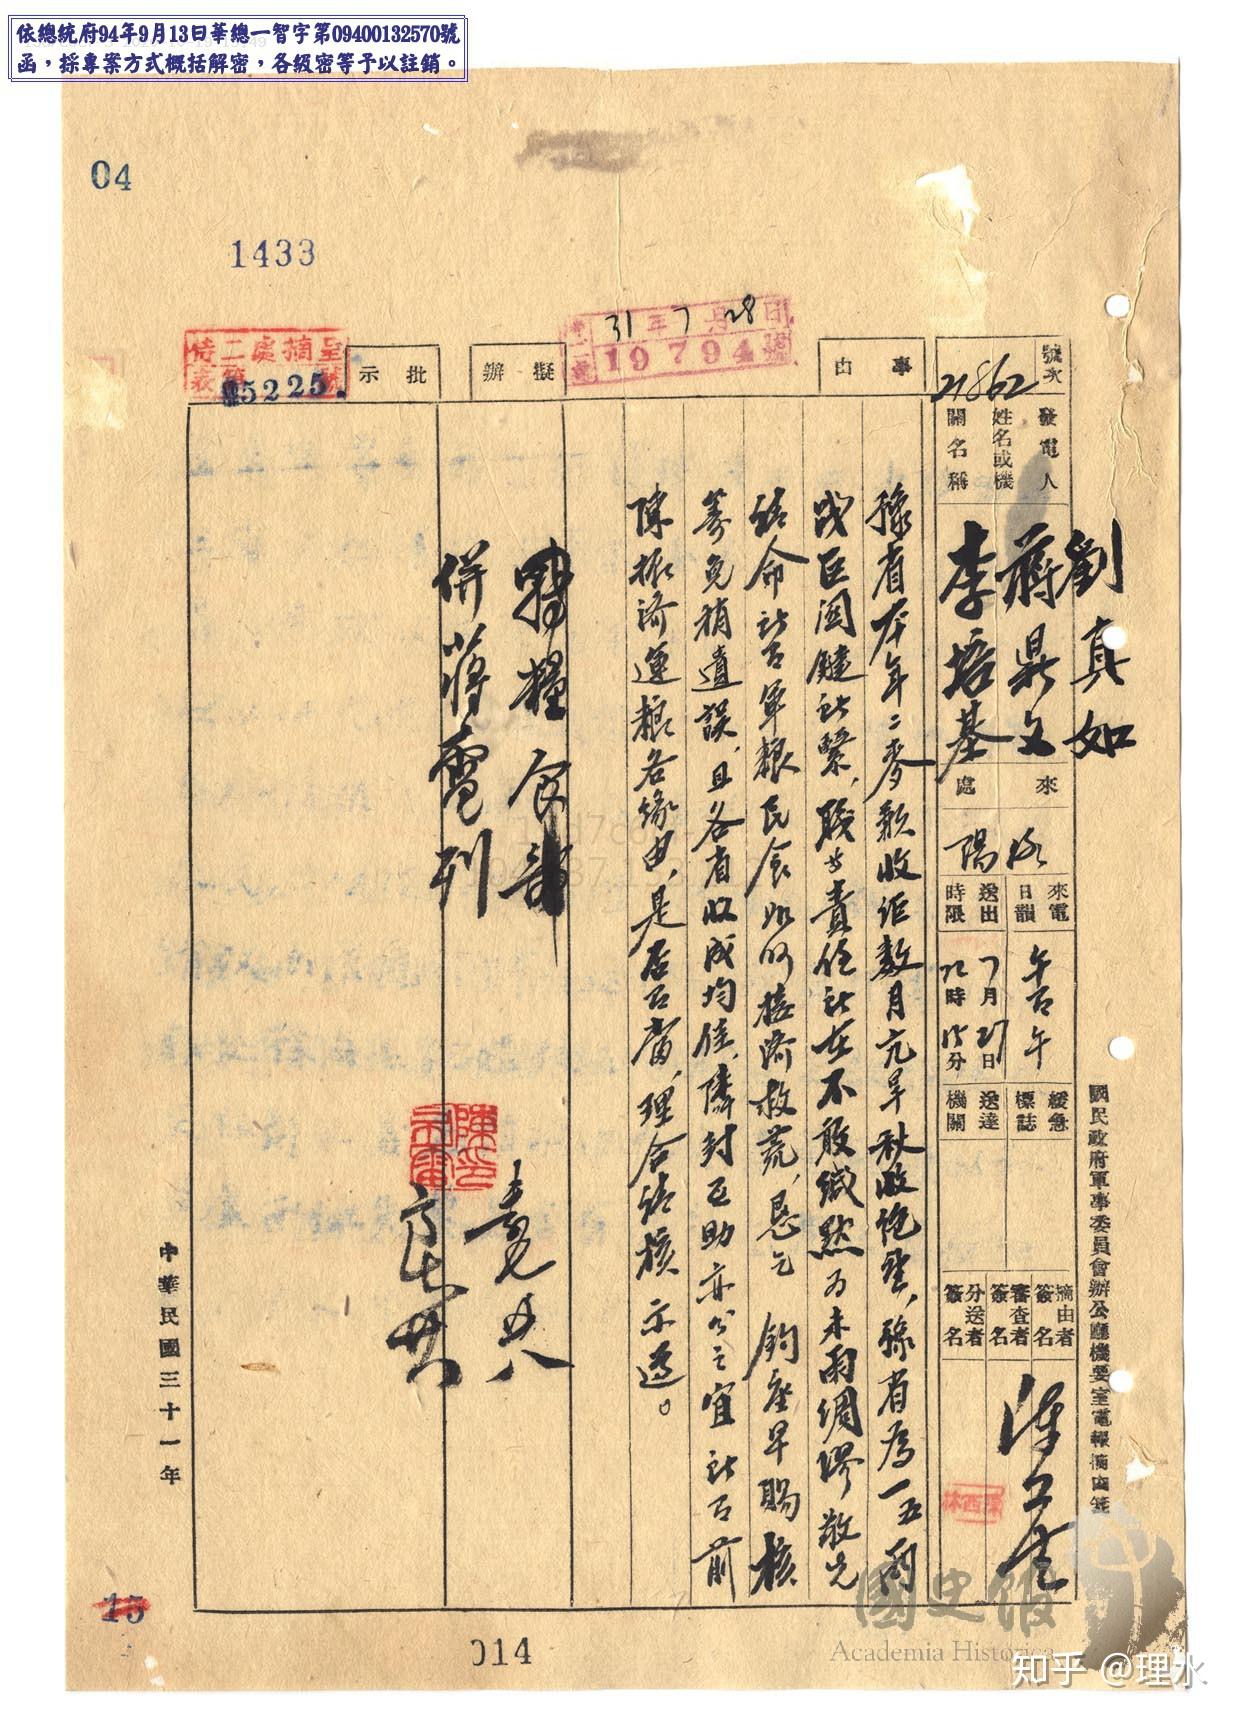 依總統府94年9月13日華總一智字第09400132570號
函，採專案方式概括解密，各級密等予以註銷。
04
1433
31年7月28日
19794號
呈摘處二侍
號5225表
號次
21862
事由
擬辦
批示
發電人
姓名或機
關名稱
劉真如
蔣鼎文
李培基
來處
洛陽
來電日韻
午百午
送出時限
7月27日
時15分
緩急標誌
送達機關
摘由者簽名
審查者簽名
分送者簽名
豫省本年二麥歉收詎數月亢旱秋收絕望，豫省為一五兩
戰區關鍵所繫，職等責任所在不敢緘默為未雨綢繆敬先
請命所有軍糧民食如何接濟救荒，懇乞 鈞座早賜核
籌免稍遺誤，且各省收成均佳，隣封互助亦公之宜所有前
陳振濟運糧各緣由，是否有當，理合請核 示遵。
轉糧食部
併蔣電列
國民政府軍事委員會辦公廳機要室電報摘由箋
中華民國三十一年
15
014
國史館
Academia Historica
知乎 @理水